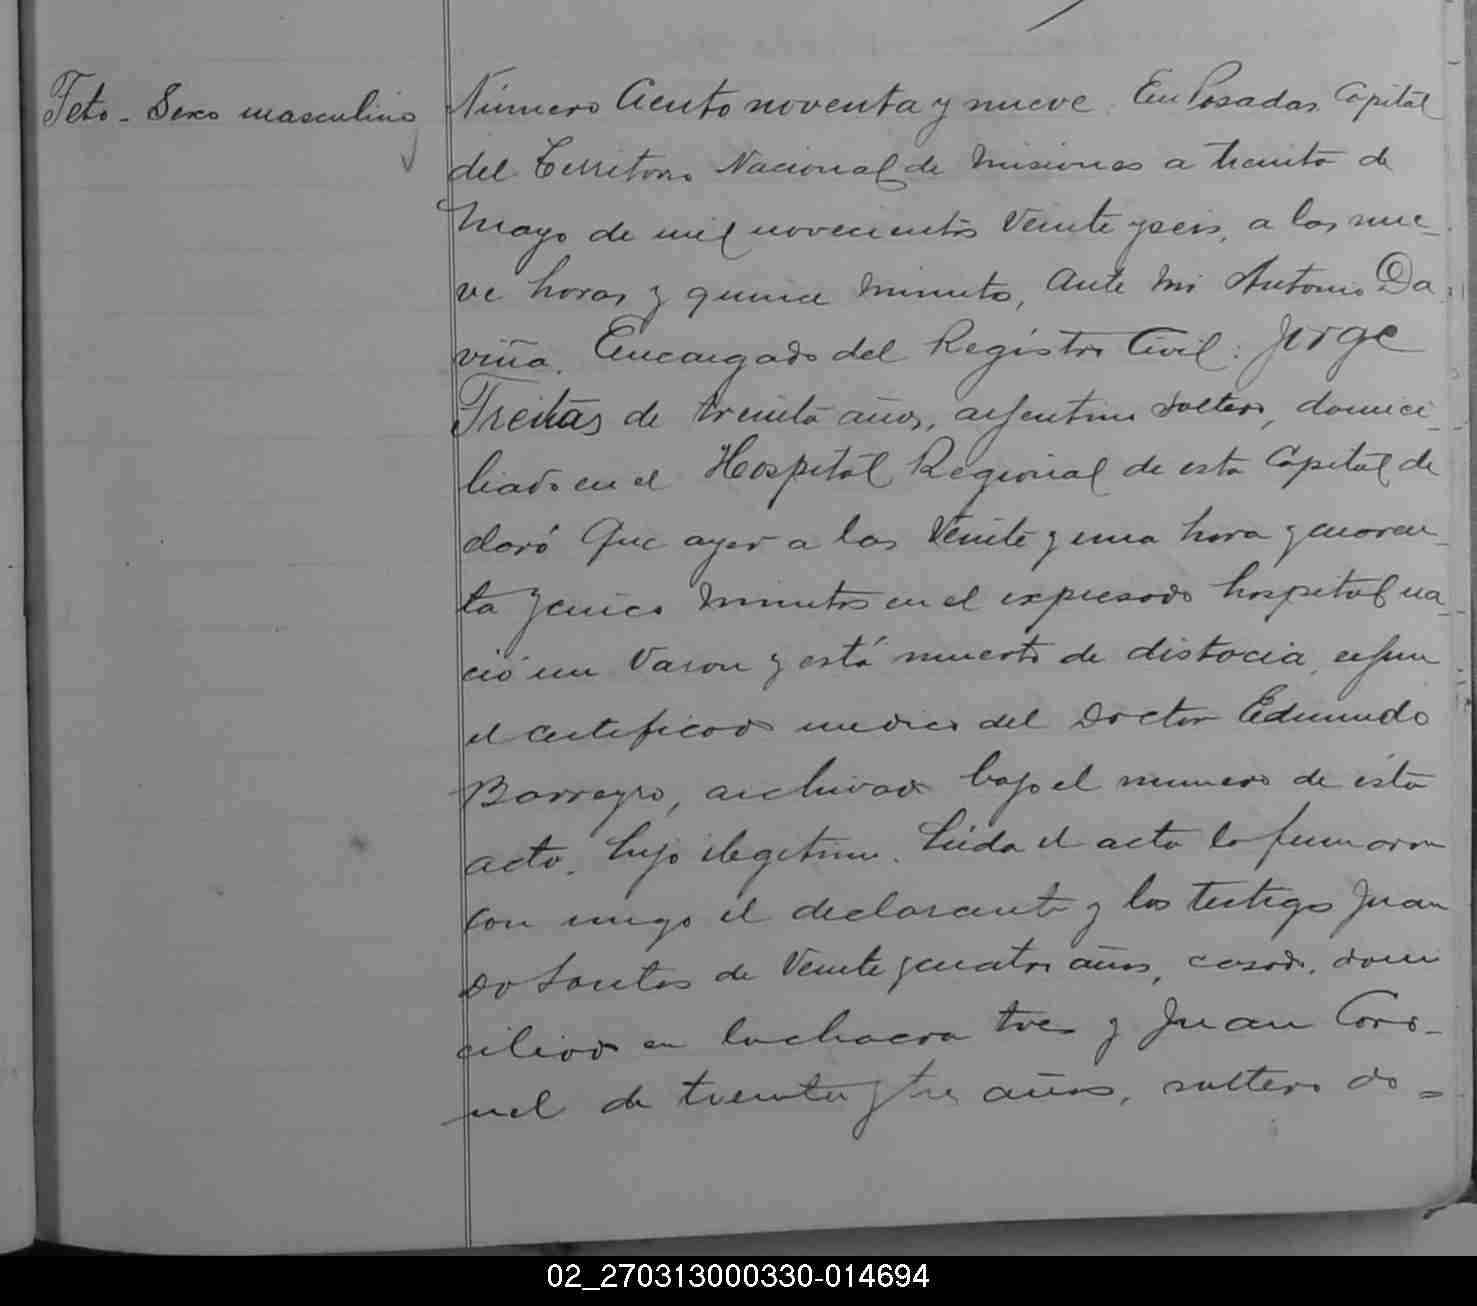 Feto - Sexo masculino
Número Ciento noventa y nueve. En Posadas Capital
del Territorio Nacional de Misiones a treinta de
Mayo de mil novecientos veinte y seis, a las nue-
ve horas y quince minutos, Ante mi Antonio Da
viña. Encargado del Registro Civil: Jorge
Freitas de treinta años, argentino soltero, domici-
liado en el Hospital Regional de esta Capital de
claró Que ayer a las Veinte y una hora y cuaren-
ta y cinco minutos en el expresado hospital na-
ció un Varon y está muerto de distocia, segun
el certificado medico del Doctor Edmundo
Barreyro, archivado bajo el numero de esta
acta. hijo ilegitimo. Leida el acta la firmaron
con migo el declarante y los testigos Juan
Do Santos de Veinte y cuatro años, casado, domi
ciliado en la chacra tres y Juan Coro-
nel de treinta y tres años, soltero do=
02_270313000330-014694